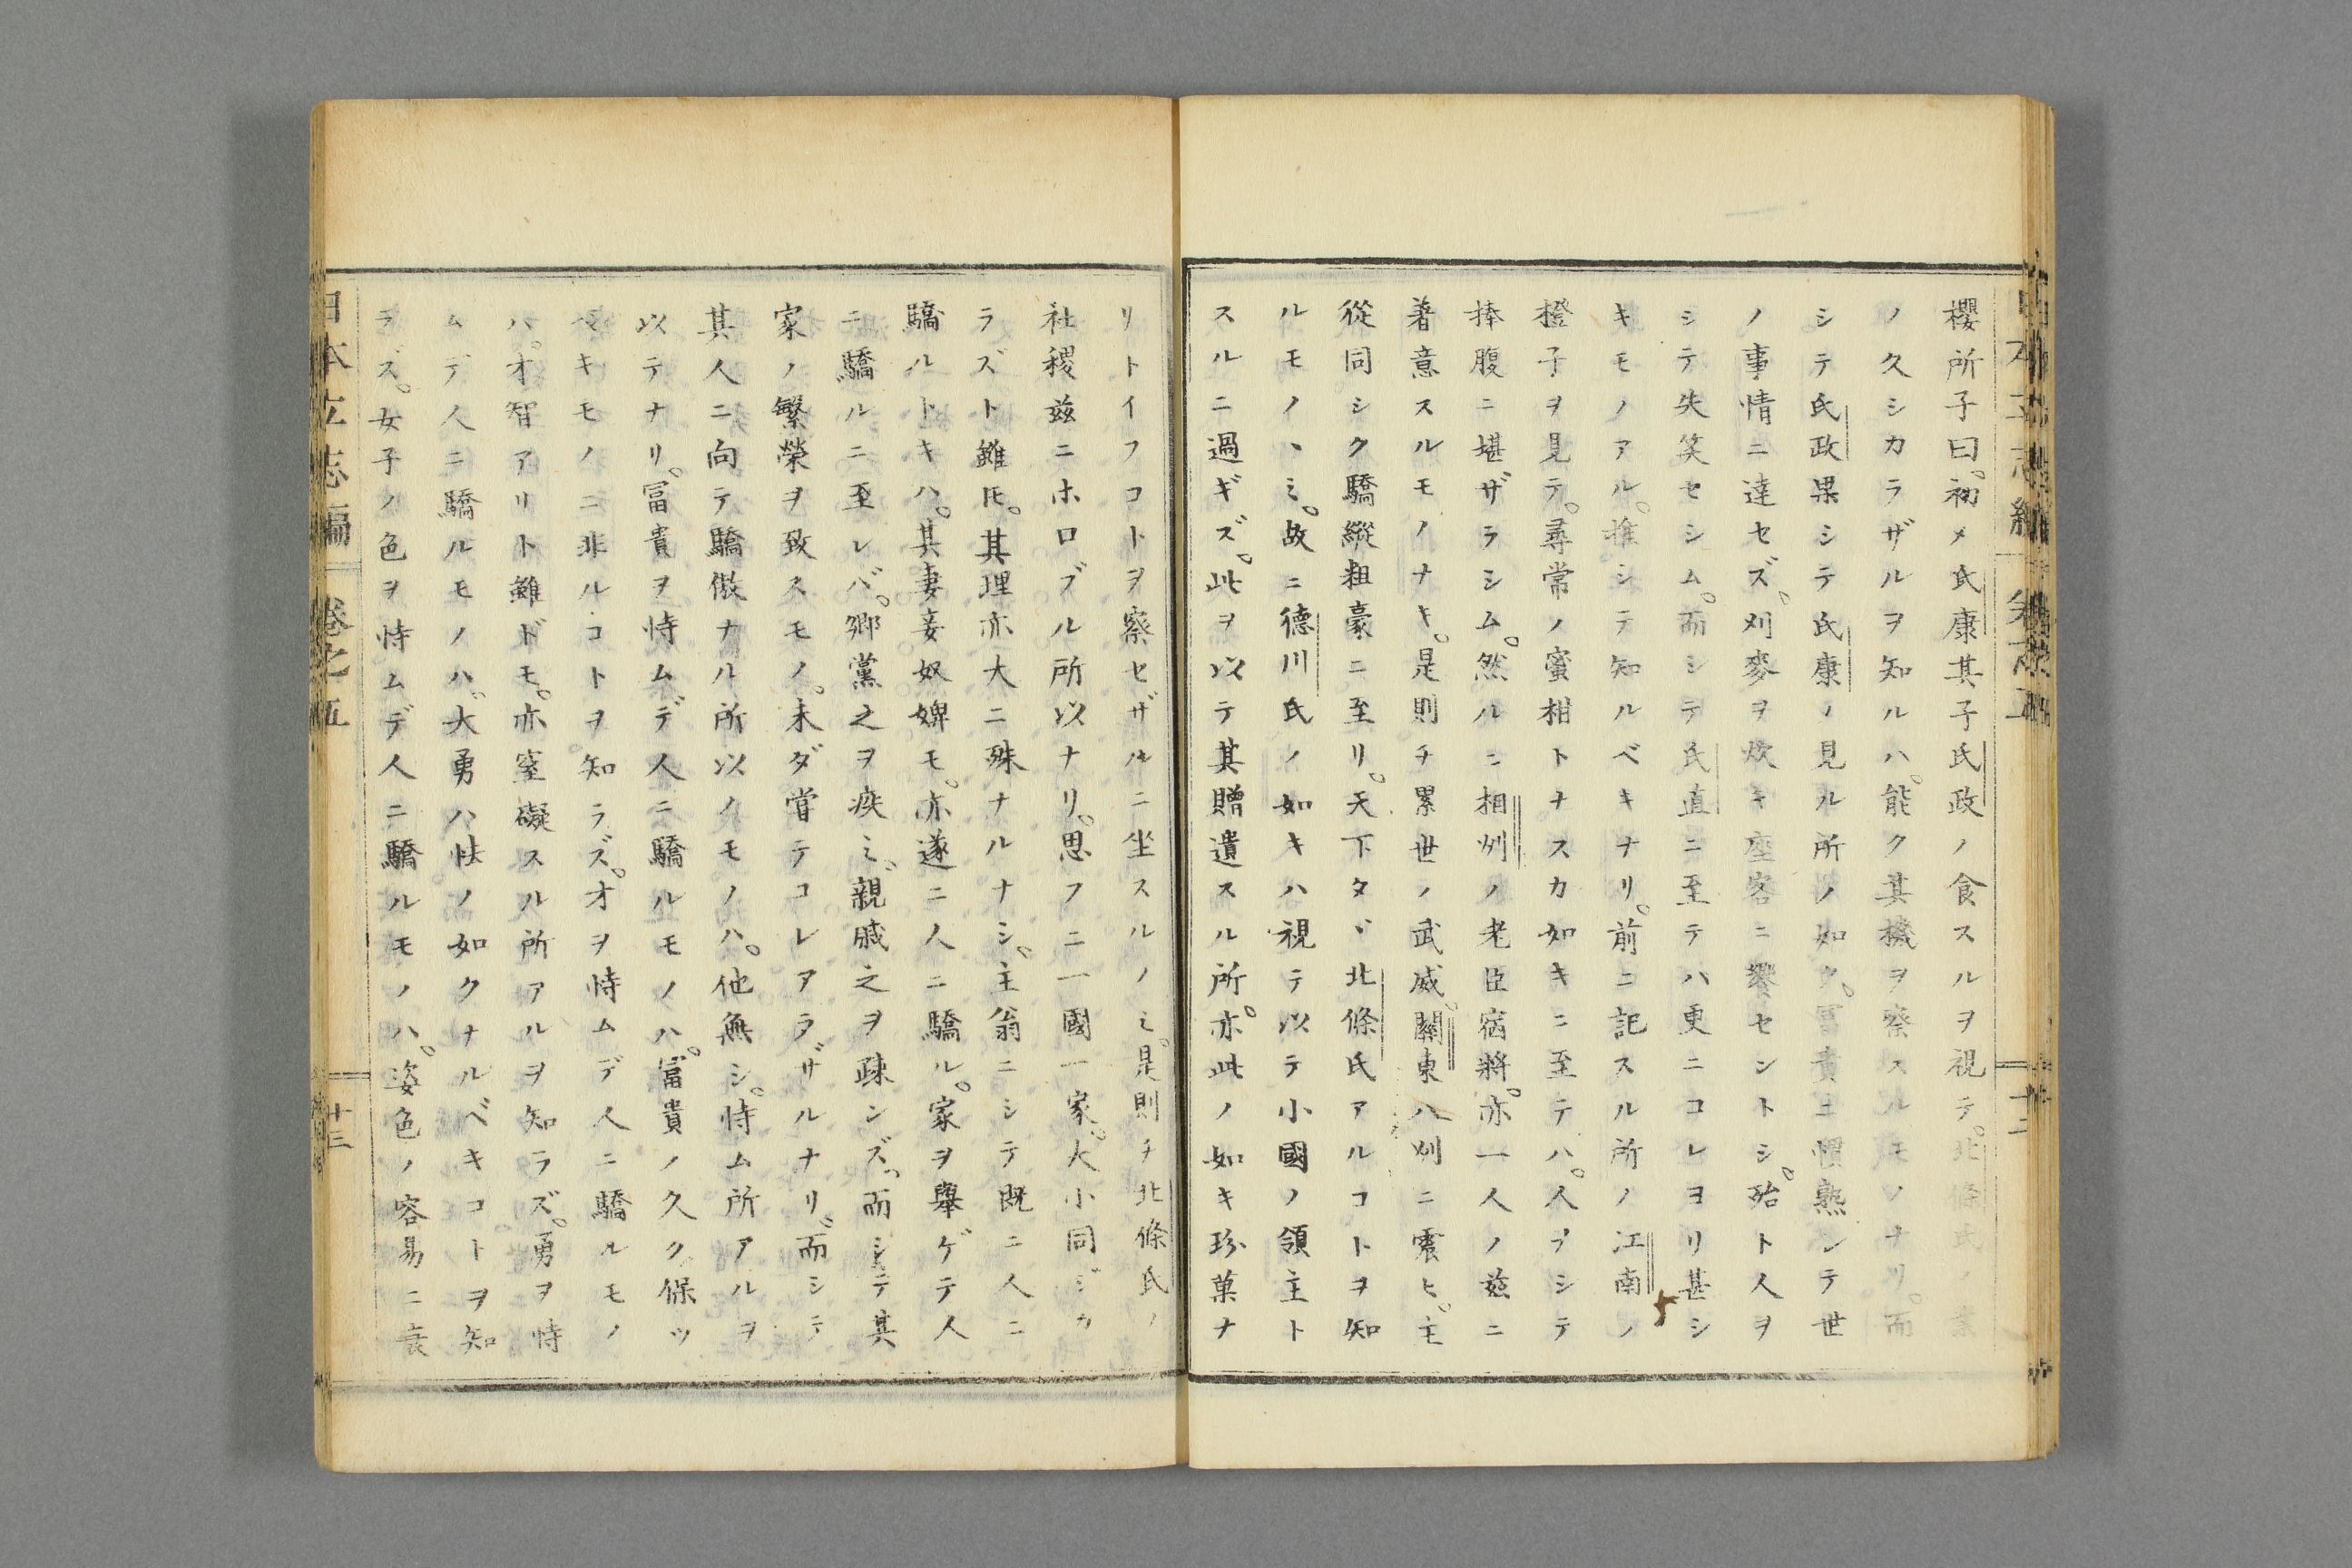 櫻所子曰。初メ氏康其子氏政ノ食スルヲ視テ。北條氏ノ業
ノ久シカラザルヲ知ルハ。能ク其機ヲ察スルモノナリ。而
シテ氏政果シテ氏康ノ見ル所ノ如ク。冨貴ニ慣熟シテ世
ノ事情ニ達セズ。刈麥ヲ炊キ座客ニ饗セントシ。殆ト人ヲ
シテ失笑セシム。而シテ氏直ニ至テハ更ニコレヨリ甚シ
キモノアル。推シテ知ルベキナリ。前ニ記スル所ノ江南ノ
橙子ヲ見テ。尋常ノ蜜柑トナスカ如キニ至テハ。人ヲシテ
捧腹ニ堪ザラシム。然ルニ相州ノ老臣宿將。亦一人ノ茲ニ
著意スルモノナキ。是則チ累世ノ武威。關東八州ニ震ヒ。主
從同シク驕縱粗豪ニ至リ。天下タヾ北條氏アルコトヲ知
ルモノヽミ。故ニ德川氏ノ如キハ視テ以テ小國ノ領主ト
スルニ過ギズ。此ヲ以テ其贈遺スル所。亦此ノ如キ珍菓ナ
リトイフコトヲ察セザルニ坐スルノミ。是則チ北條氏ノ
社稷茲ニホロブル所以ナリ。思フニ一國一家。大小同ジカ
ラズト雖𪜈。其理亦大ニ殊ナルナシ。主翁ニシテ既ニ人ニ
驕ルトキハ。其妻妾奴婢モ。亦遂ニ人ニ驕ル。家ヲ舉ゲテ人
ニ驕ルニ至レバ。鄉黨之ヲ疾ミ。親戚之ヲ疎ンズ。而シテ其
家ノ繁榮ヲ致スモノ。未ダ甞テコレアラザルナリ。而シテ
其人ニ向テ驕傲ナル所以ノモノハ。他無シ。恃ム所アルヲ
以テナリ。冨貴ヲ恃ムデ人ニ驕ルモノハ。冨貴ノ久ク保ツ
ベキモノニ非ルコトヲ知ラズ。才ヲ恃ムデ人ニ驕ルモノ
ハ。才智アリト雖ドモ。亦窒礙スル所アルヲ知ラズ。勇ヲ恃
ムデ人ニ驕ルモノハ。大勇ハ怯ノ如クナルベキコトヲ知
ラズ。女子ノ色ヲ恃ムデ人ニ驕ルモノハ。姿色ノ容易ニ衰
日本立志編
卷之五
十三